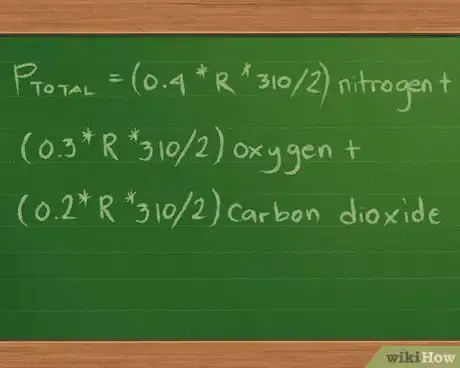 PTOTAL = (0.4 * R * 310/2) nitrogen +
(0.3 * R * 310/2) oxygen +
(0.2 * R * 310/2) carbon dioxide
wikiHow